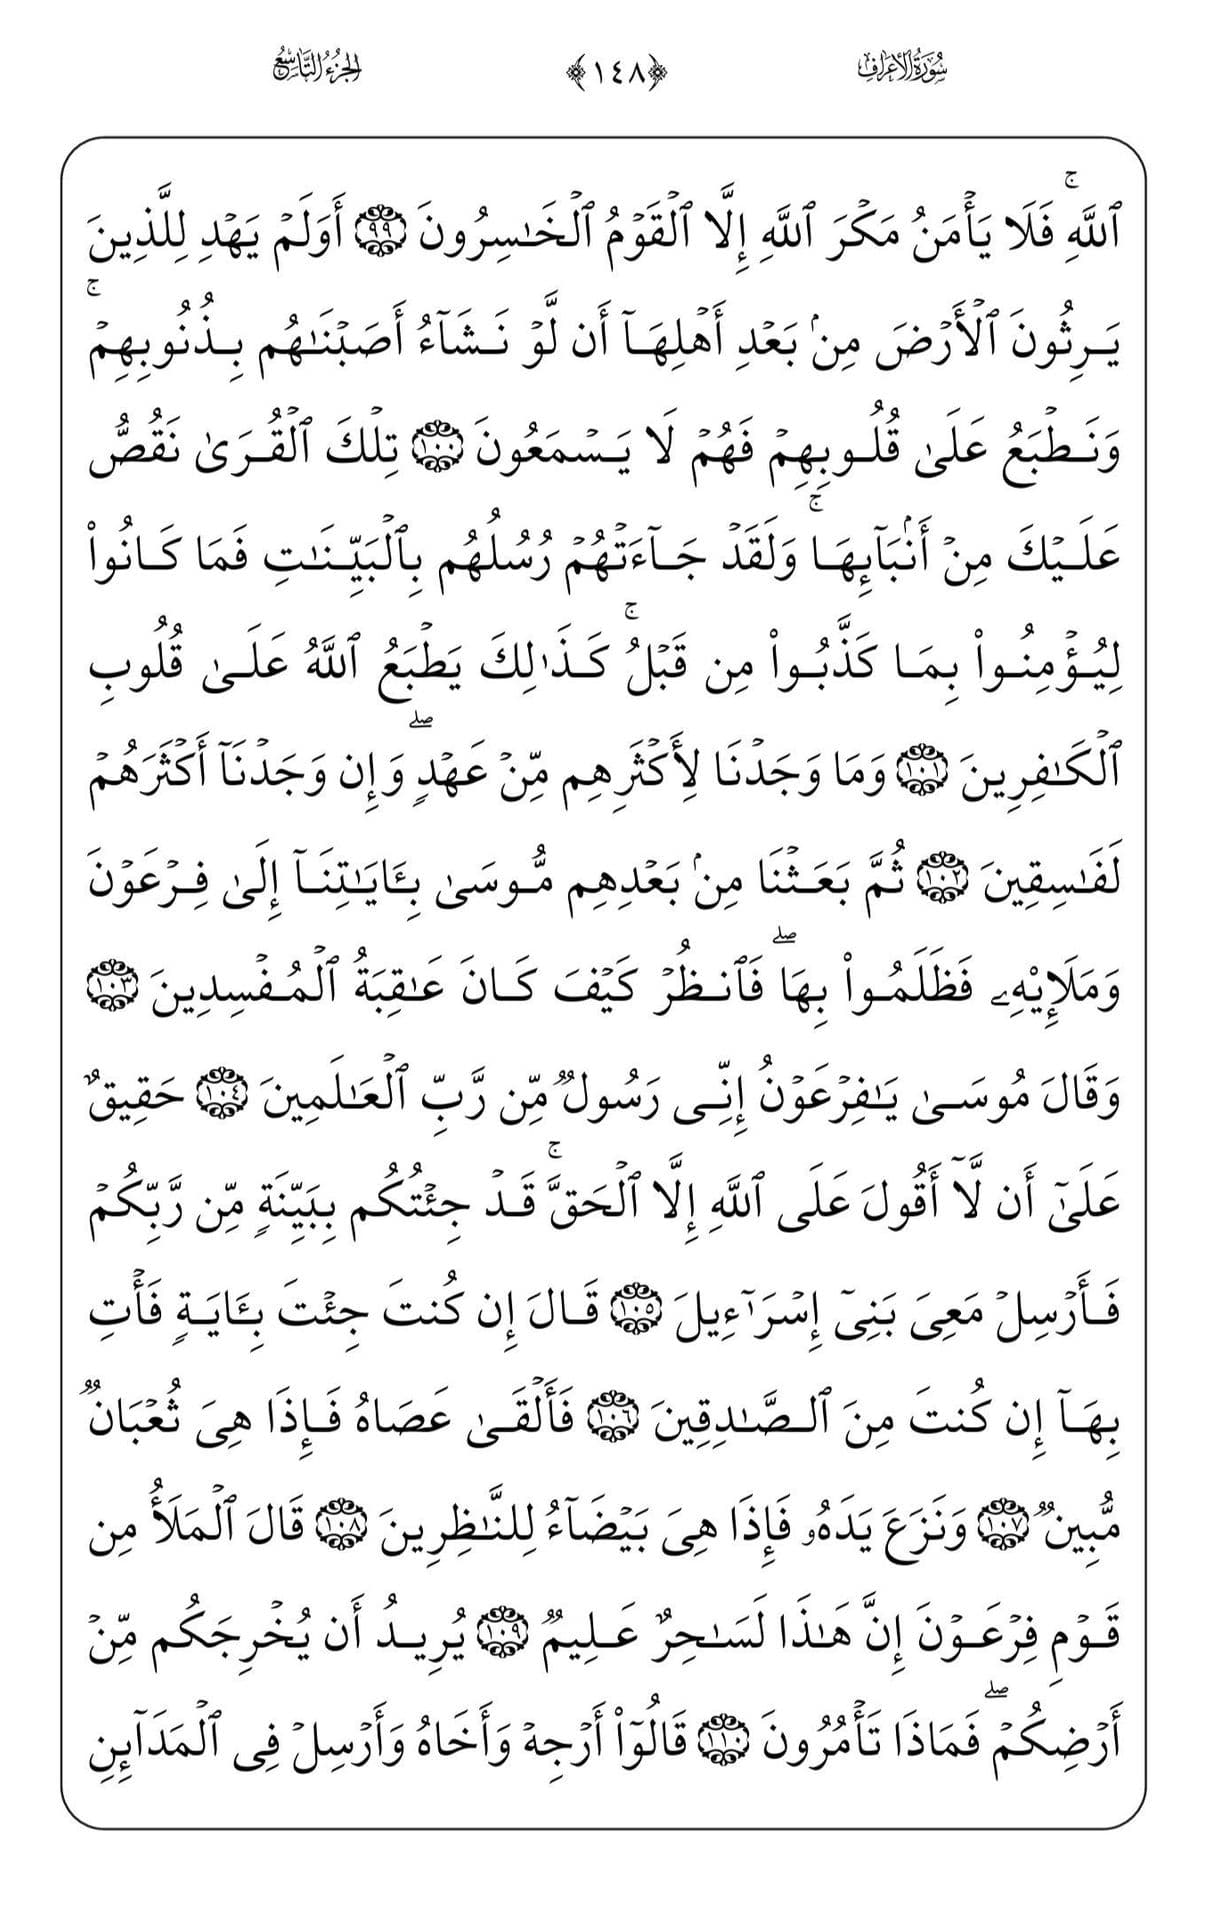 سُورَةُ الأَعۡرَافِ ﴿١٤٨﴾ الجُزۡءُ التَّاسِعُ
ٱللَّهِۚ فَلَا يَأۡمَنُ مَكۡرَ ٱللَّهِ إِلَّا ٱلۡقَوۡمُ ٱلۡخَٰسِرُونَ ٩٩ أَوَلَمۡ يَهۡدِ لِلَّذِينَ
يَرِثُونَ ٱلۡأَرۡضَ مِنۢ بَعۡدِ أَهۡلِهَآ أَن لَّوۡ نَشَآءُ أَصَبۡنَٰهُم بِذُنُوبِهِمۡۚ
وَنَطۡبَعُ عَلَىٰ قُلُوبِهِمۡ فَهُمۡ لَا يَسۡمَعُونَ ١٠٠ تِلۡكَ ٱلۡقُرَىٰ نَقُصُّ
عَلَيۡكَ مِنۡ أَنۢبَآئِهَاۚ وَلَقَدۡ جَآءَتۡهُمۡ رُسُلُهُم بِٱلۡبَيِّنَٰتِ فَمَا كَانُواْ
لِيُؤۡمِنُواْ بِمَا كَذَّبُواْ مِن قَبۡلُۚ كَذَٰلِكَ يَطۡبَعُ ٱللَّهُ عَلَىٰ قُلُوبِ
ٱلۡكَٰفِرِينَ ١٠١ وَمَا وَجَدۡنَا لِأَكۡثَرِهِم مِّنۡ عَهۡدٖۖ وَإِن وَجَدۡنَآ أَكۡثَرَهُمۡ
لَفَٰسِقِينَ ١٠٢ ثُمَّ بَعَثۡنَا مِنۢ بَعۡدِهِم مُّوسَىٰ بِـَٔايَٰتِنَآ إِلَىٰ فِرۡعَوۡنَ
وَمَلَإِيْهِۦ فَظَلَمُواْ بِهَاۖ فَٱنظُرۡ كَيۡفَ كَانَ عَٰقِبَةُ ٱلۡمُفۡسِدِينَ ١٠٣
وَقَالَ مُوسَىٰ يَٰفِرۡعَوۡنُ إِنِّي رَسُولٞ مِّن رَّبِّ ٱلۡعَٰلَمِينَ ١٠٤ حَقِيقٌ
عَلَىٰٓ أَن لَّآ أَقُولَ عَلَى ٱللَّهِ إِلَّا ٱلۡحَقَّۚ قَدۡ جِئۡتُكُم بِبَيِّنَةٖ مِّن رَّبِّكُمۡ
فَأَرۡسِلۡ مَعِيَ بَنِيٓ إِسۡرَٰٓءِيلَ ١٠٥ قَالَ إِن كُنتَ جِئۡتَ بِـَٔايَةٖ فَأۡتِ
بِهَآ إِن كُنتَ مِنَ ٱلصَّٰدِقِينَ ١٠٦ فَأَلۡقَىٰ عَصَاهُ فَإِذَا هِيَ ثُعۡبَانٞ
مُّبِينٞ ١٠٧ وَنَزَعَ يَدَهُۥ فَإِذَا هِيَ بَيۡضَآءُ لِلنَّٰظِرِينَ ١٠٨ قَالَ ٱلۡمَلَأُ مِن
قَوۡمِ فِرۡعَوۡنَ إِنَّ هَٰذَا لَسَٰحِرٌ عَلِيمٞ ١٠٩ يُرِيدُ أَن يُخۡرِجَكُم مِّنۡ
أَرۡضِكُمۡۖ فَمَاذَا تَأۡمُرُونَ ١١٠ قَالُوٓاْ أَرۡجِهۡ وَأَخَاهُ وَأَرۡسِلۡ فِي ٱلۡمَدَآئِنِ